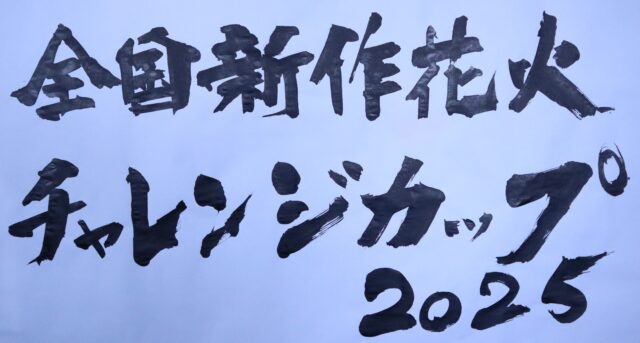 全国新作花火
チャレンジカップ
2025